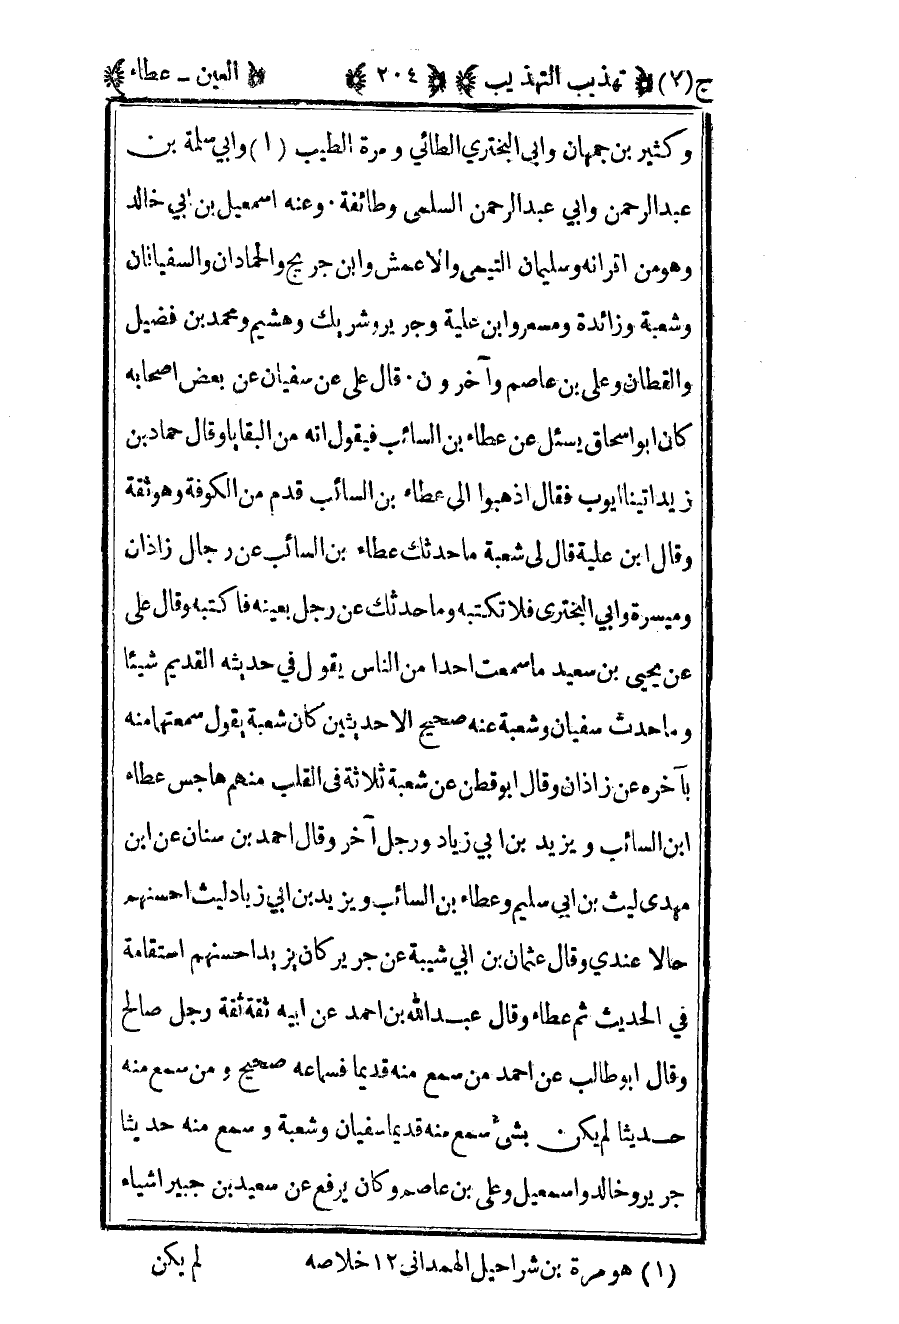 ج(٧) تهذيب التهذيب ٢٠٤ العين ـ عطاء
وكثير بن جمهان وابى البختري الطائي ومرة الطيب (١) وابي سلمة بن
عبدالرحمن وابي عبدالرحمن السلمى وطائفة٠ وعنه اسمعيل بن ابي خالد
وهو من اقرانه وسليمان التيمى والاعمش وابن جريج والحمادان والسفيانان
وشعبة وزائدة ومسعر وابن علية وجرير وشريك وهشيم ومحمد بن فضيل
والقطان وعلى بن عاصم وآخرون٠ قال على عن سفيان عن بعض اصحابه
كان ابو اسحاق يسئل عن عطاء بن السائب فيقول انه من البقايا وقال حماد بن
زيد اتينا ايوب فقال اذهبوا الى عطاء بن السائب قدم من الكوفة وهو ثقة
وقال ابن علية قال لى شعبة ماحدثك عطاء بن السائب عن رجال زاذان
وميسرة وابي البخترى فلا تكتبه وماحدثك عن رجل بعينه فاكتبه وقال على
عن يحيى بن سعيد ماسمعت احدا من الناس يقول في حديثه القديم شيئا
وماحدث سفيان وشعبة عنه صحيح الا حديثين كان شعبة يقول سمعتها منه
بآخره عن زاذان وقال ابو قطن عن شعبة ثلاثة فى القلب منهم هاجس عطاء
ابن السائب ويزيد بن ابي زياد ورجل آخر وقال احمد بن سنان عن ابن
مهدى ليث بن ابي سليم وعطاء بن السائب ويزيد بن ابي زياد ليث احسنهم
حالا عندي وقال عثمان بن ابي شيبة عن جرير كان يزيد احسنهم استقامة
في الحديث ثم عطاء وقال عبدالله بن احمد عن ابيه ثقة ثقة رجل صالح
وقال ابوطالب عن احمد من سمع منه قديما فسماعه صحيح ومن سمع منه
حديثا لم يكن بشئ سمع منه قديما سفيان وشعبة وسمع منه حديثا
جرير وخالد واسمعيل وعلى بن عاصم وكان يرفع عن سعيد بن جبير اشياء
(١) هو مرة بن شراحيل الهمدانى ١٢ خلاصه لم يكن